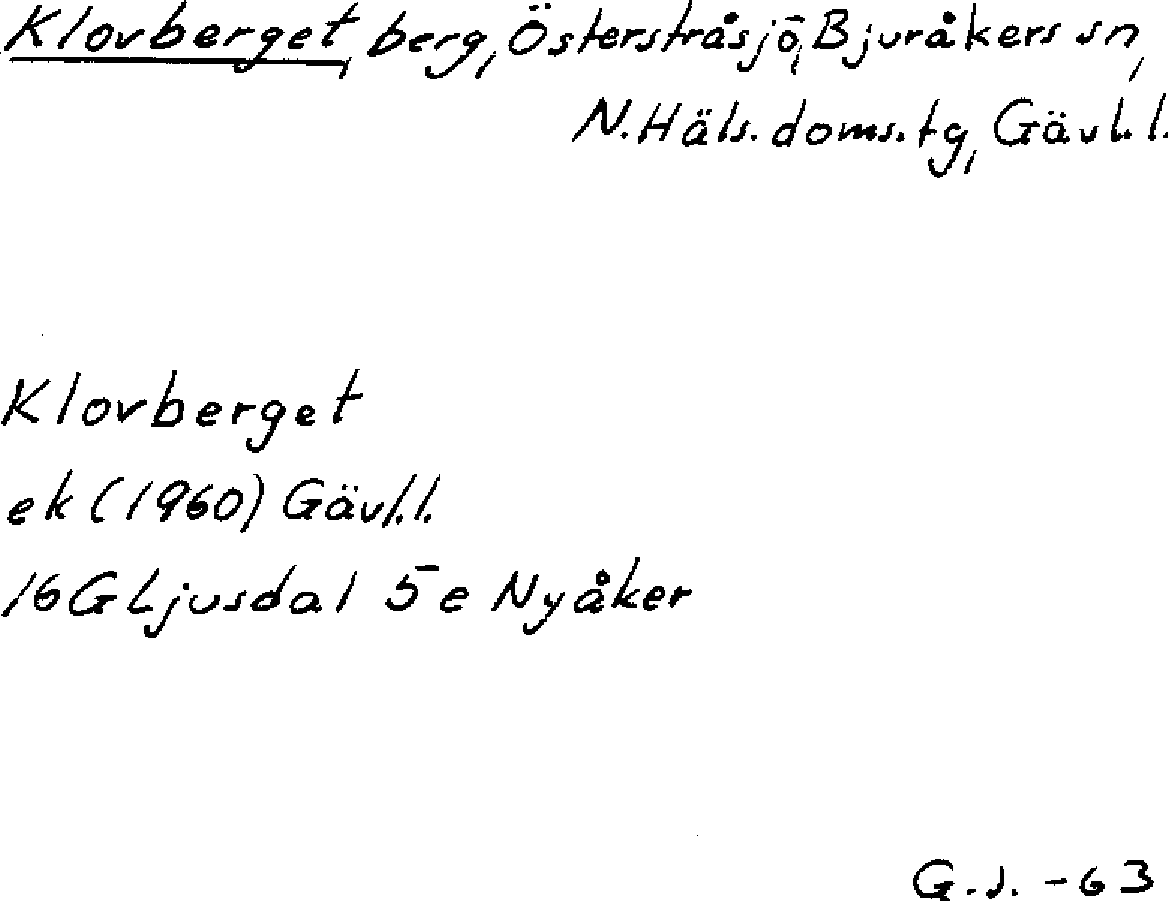 Klovberget, berg, Österstråsjö, Bjuråkers sn,
N. Häls. doms. tg, Gävl. l.
Klovberget
ek (1960) Gävl. l.
16G Ljusdal 5e Nyåker
G.J. -63